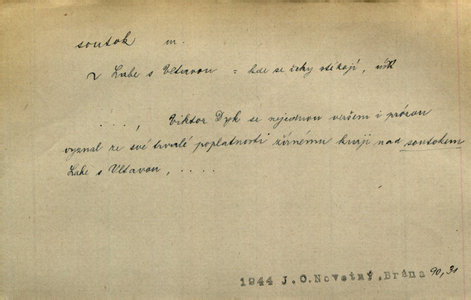 soutok m.
Labe s Vltavou = kde se řeky stékají, ústí
. . . . , Viktor Dyk se nejednou veršem i prózou
vyznal ze své trvalé poplatnosti žírnému kraji nad soutokem
Labe s Vltavou, . . . .
1944 J.O.Novotný,Brána 90,31